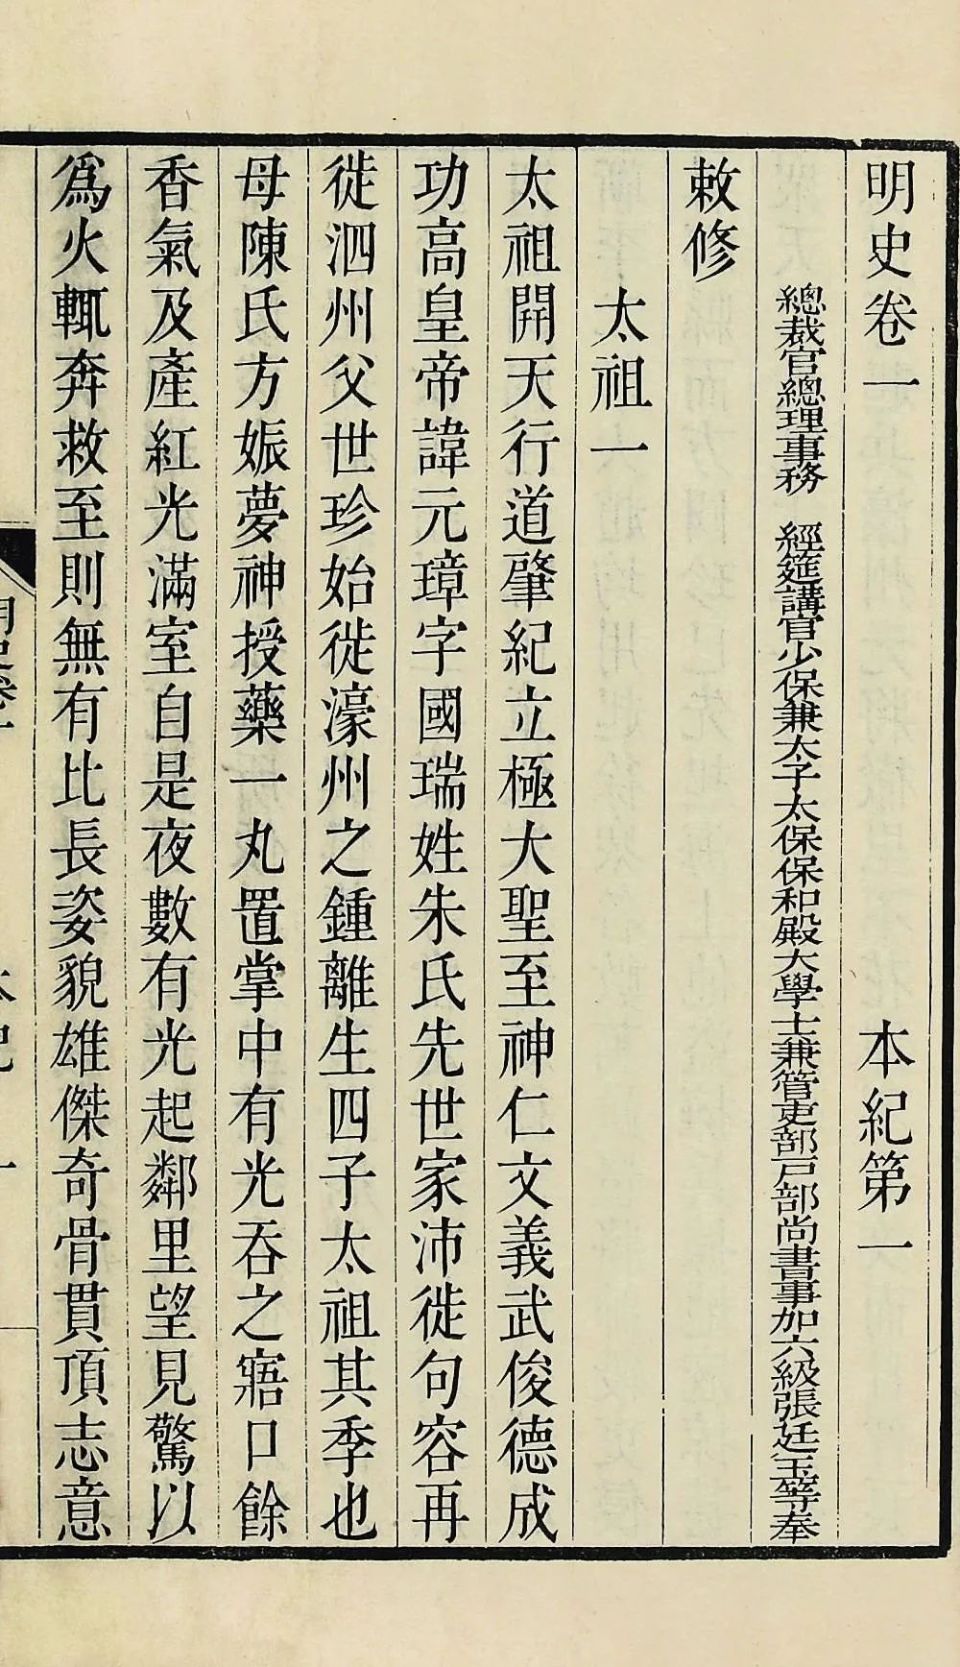 明史卷一 本紀第一
總裁官總理事務 經筵講官少保兼太子太保保和殿大學士兼管吏部戶部尚書事加六級張廷玉等奉
敕修
太祖一
太祖開天行道肇紀立極大聖至神仁文義武俊德成
功高皇帝諱元璋字國瑞姓朱氏先世家沛徙句容再
徙泗州父世珍始徙濠州之鍾離生四子太祖其季也
母陳氏方娠夢神授藥一丸置掌中有光吞之寤口餘
香氣及產紅光滿室自是夜數有光起鄰里望見驚以
為火輒奔救至則無有比長姿貌雄傑奇骨貫頂志意